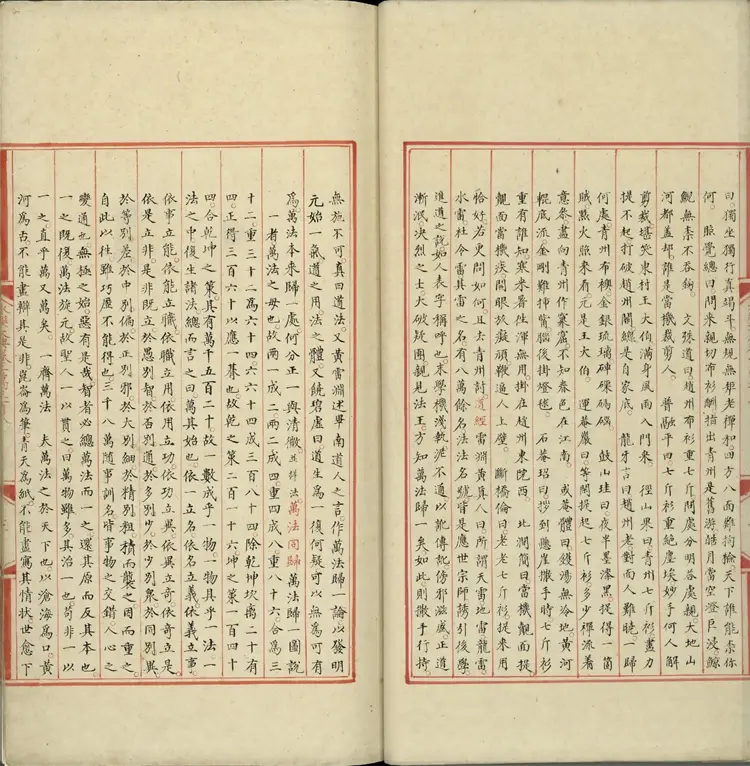 曰獨坐獨行真竭斗無規無矩老禪和四方八面難拘撿天下誰能奈你
何。 賑覺總曰問來親切布衫酬指出青州是舊游皓月當空澄巨浸鯨
鯢無柰不吞鉤。 文殊道曰趙州布衫重七斤問處分明荅處親大地山
河都蓋却誰是當機裁剪人。 普融平曰七斤衫重絶塵埃妙手何人解
剪裁堪笑東村王大伯滿身風雨入門来。 徑山杲曰青州七斤衫盡力
提不起打破趙州關總是自家底。 龍牙言曰趙州老對面人難曉一歸
何處青州布襖金銀琉璃硨磲碼碯。 鼓山珪曰夜半墨漆黑捉得一箇
賊㸃火照来看元是王大伯。 運菴巖曰等閑提起七斤衫多少禪流着
意叅盡向青州作窠窟不知春色在江南。 或菴體曰鑊湯無冷地黄河
輥底流金剛難揷觜腦後掛燈毬。 石菴玿曰拶到懸崖撒手時七斤衫
重有誰知寒来暑往渾無用掛在趙州東院西。 北澗簡曰當機覿面提
覿面當機疾開眼放癡頑鞭逼人上壁。 斷橋倫曰老老七斤衫提来用
恰好若更問如何且去青州討。道經雷淵黄真人曰所謂天雷地雷龍雷
水雷社令雷其雷之名有八萬餘名法法名號皆是應世宗師誘引後學
進道之説始人表字稱呼也。末學機淺執泥不通以訛傳訛傍邪滋盛正道
漸泯決烈之士一大破疑團親見法王方知萬法歸一矣如此則撒手行持。
無施不可真曰道法。又黄雷淵述畢南道人之言作萬法歸一論以發明
元始一氣道之用法之體又饒碧虚曰道生為一復何疑可以無為可有
為萬法本来歸一處何分正一與清微。並詳法萬法同歸萬法歸一圖説
一者萬法之母也故兩一成二兩二成四重四成八重八十六合爲三
十二重三十二為六十四六六十四成三百八十四除乾坤坎離二十有
四正得三百六十以應一朞也故乾之策二百一十六坤之策一百四十
四合乾坤之策具有萬千五百二十故一數成乎一物一物具乎一法一
法之中復生諸法總而言之曰萬其始也依一立名依名立義依義立事
依事立能依能立職依職立用依用立功依功立異依異立奇依奇立是
依是立非是非既立於愚别智於否别通於多别少於少别衆於同别異
於等别差於中别偏於正别邪於大别細於精别粗積而襲之因而重之
自此以往雖巧歷不能得也三千八萬隨事訓名時事物之交錯人心之
變通也無極之始惡有是哉智者必總萬法而一之還其原而反其本也
一之既復萬法旋元故聖人一以貫之曰萬物雖多其治一也苟非一以
一之直乎萬又萬矣。一齊萬法 夫萬法之於天下也以滄海為口黄
河為舌不能盡辯其是非崑崙為筆青天為紙不能盡寫其情状世愈下